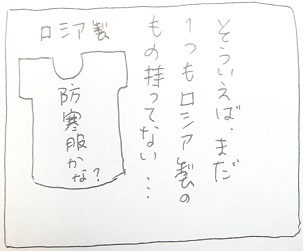 そういえば、まだ
1つもロシア製の
もの持ってない…
ロシア製
防寒服かな?